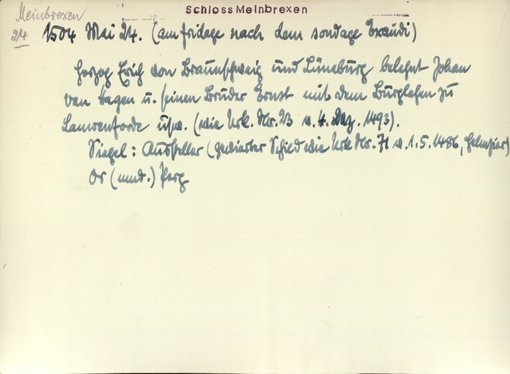 Meinbrexen
24
Schloss Meinbrexen
1504 Mai 24. (am fridage nach dem sondage Exaudi)
Herzog Erich von Braunschweig und Lüneburg belehnt Johan
van Hagen u. seinen Bruder Ernst mit dem Burglehen zu
Lauenforde usw. (wie Urk. Nr. 23 v. 4. Dez. 1493).
Siegel: Aussteller (gevierter Schild wie Urk. Nr. 71 v. 1.5.1486, Helmzier)
Or (mnd.) Perg